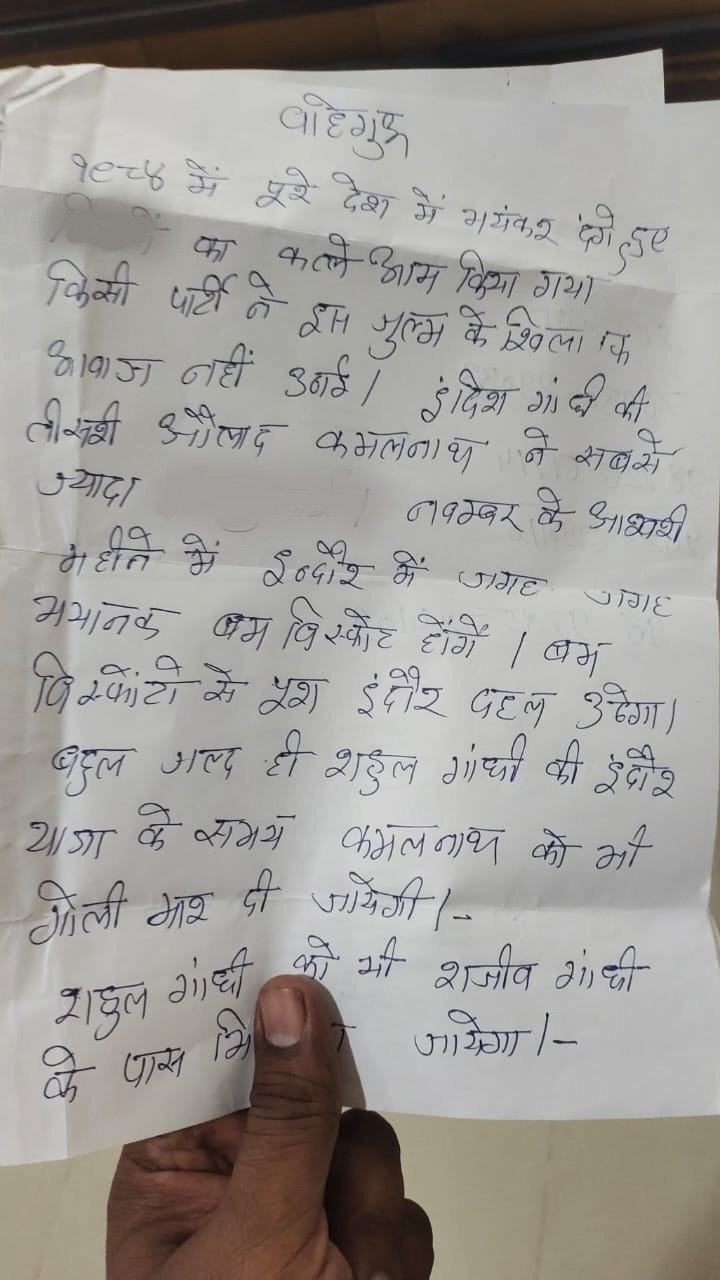 वाहेगुरू
१९८४ में पूरे देश में भयंकर दंगे हुए
का कत्ले आम किया गया
किसी पार्टी ने इस जुल्म के खिलाफ
आवाज नहीं उठाई। इंदिरा गांधी की
तीसरी औलाद कमलनाथ ने सबसे
ज्यादा नवम्बर के आखरी
महीने में इन्दौर में जगह जगह
भयानक बम विस्फोट होंगें। बम
विस्फोंटो से पूरा इंदौर दहल उठेगा।
बहुत जल्द ही राहुल गांधी की इंदौर
यात्रा के समय कमलनाथ को भी
गोली मार दी जायेगी।-
राहुल गांधी को भी राजीव गांधी
के पास जायेगा।-